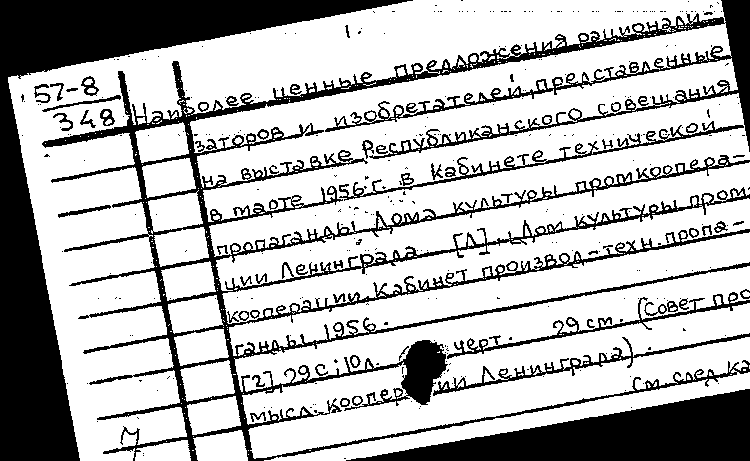 1.
57-8
348
Наиболее ценные предложения рационали-
заторов и изобретателей, представленные
на выставке Республиканского совещания
в марте 1956 г. в Кабинете технической
пропаганды Дома культуры промкоопера-
ции Ленинграда. [Л]. Дом культуры пром-
кооперации, Кабинет производ-техн. пропа-
ганды, 1956.
[2], 29 с; 10 л. черт. 29 см. (Совет про
мысл. коопер ии Ленинграда).
См след ка